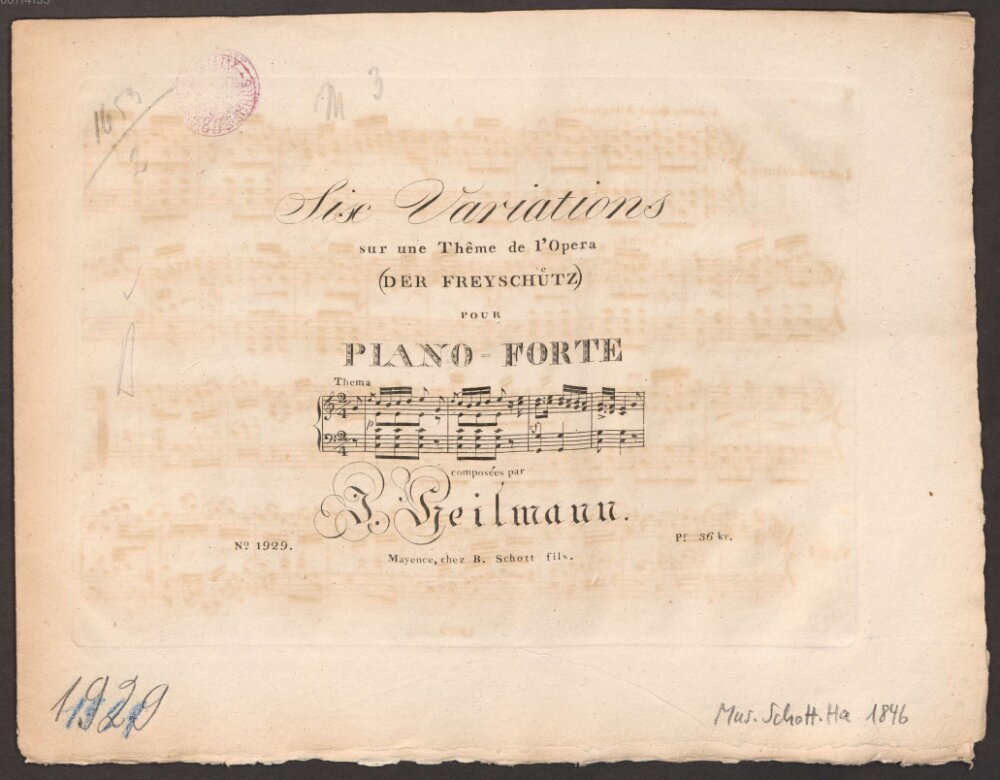 1653
2
M 3
Six Variations
sur une Thême de l'Opera
(DER FREYSCHÜTZ)
POUR
PIANO-FORTE
Thema
p
composées par
J. Heilmann.
Nº 1929.
Pr. 36 kr.
Mayence, chez B. Schott fils.
1929
Mus. Schott. Ha 1846